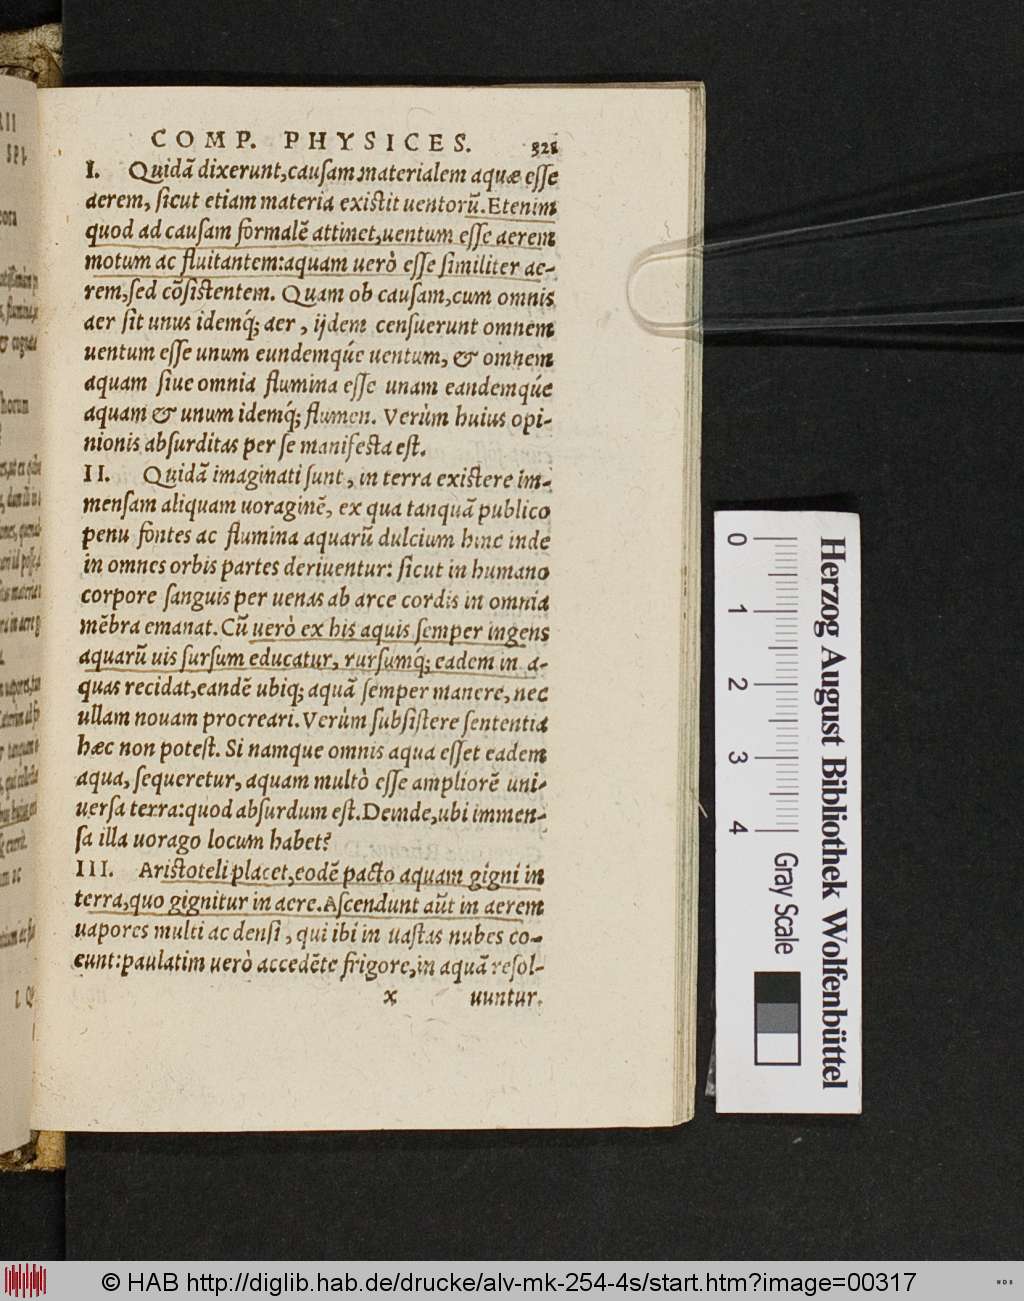 COMP. PHYSICES. 321
I. Quidā dixerunt, cauſam materialem aquæ eſſe
aerem, ſicut etiam materia exiſtit uentorū. Etenim
quod ad cauſam formalē attinet, uentum eſſe aerem
motum ac fluitantem: aquam uerò eſſe ſimiliter ae-
rem, ſed cōſiſtentem. Quam ob cauſam, cum omnis
aer ſit unus idemq́; aer, ijdem cenſuerunt omnem
uentum eſſe unum eundemqúe uentum, & omnem
aquam ſiue omnia flumina eſſe unam eandemqúe
aquam & unum idemq́; flumen. Verùm huius opi-
nionis abſurditas per ſe manifeſta eſt.
II. Quidā imaginati ſunt, in terra exiſtere im-
menſam aliquam uoraginē, ex qua tanquā publico
penu fontes ac flumina aquarū dulcium hinc inde
in omnes orbis partes deriuentur: ſicut in humano
corpore ſanguis per uenas ab arce cordis in omnia
mēbra emanat. Cū uerò ex his aquis ſemper ingens
aquarū uis ſurſum educatur, rurſumq́; eadem in a-
quas recidat, eandē ubiq; aquā ſemper manere, nec
ullam nouam procreari. Verùm ſubſiſtere ſententia
hæc non poteſt. Si namque omnis aqua eſſet eadem
aqua, ſequeretur, aquam multò eſſe ampliorē uni-
uerſa terra: quod abſurdum eſt. Deinde, ubi immen-
ſa illa uorago locum habet?
III. Ariſtoteli placet, eodē pacto aquam gigni in
terra, quo gignitur in aere. Aſcendunt aūt in aerem
uapores multi ac denſi, qui ibi in uaſtas nubes co-
eunt: paulatim uerò accedēte frigore, in aquā reſol-
x uuntur.
0 1 2 3 4
Gray Scale
Herzog August Bibliothek Wolfenbüttel
© HAB http://diglib.hab.de/drucke/alv-mk-254-4s/start.htm?image=00317